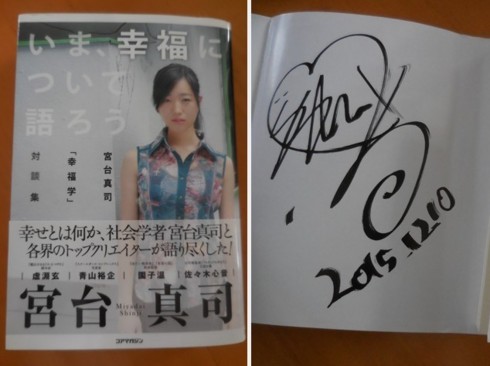 いま、幸福に
ついて
語ろう
宮台真司
「幸福学」
対談集
幸せとは何か、社会学者 宮台真司と
各界のトップクリエイターが語り尽くした!
虚淵玄
青山裕企
園子温
佐々木心音
宮台真司
Miyadai
Shinji
コアマガジン
2015.12.10